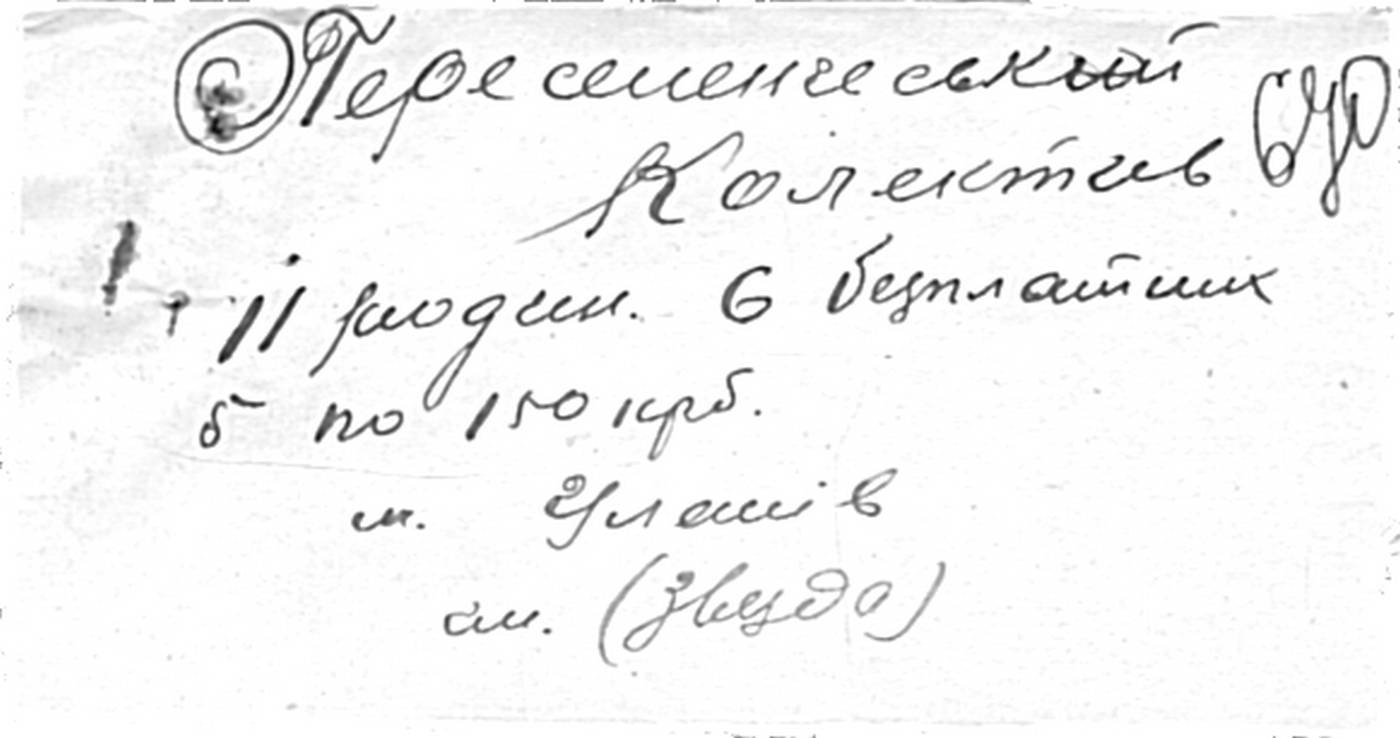 Переселенческый
Колектив
11 родин. 6 безплатних
5 по 150 крб.
м. Уланів
см. (Звезда)